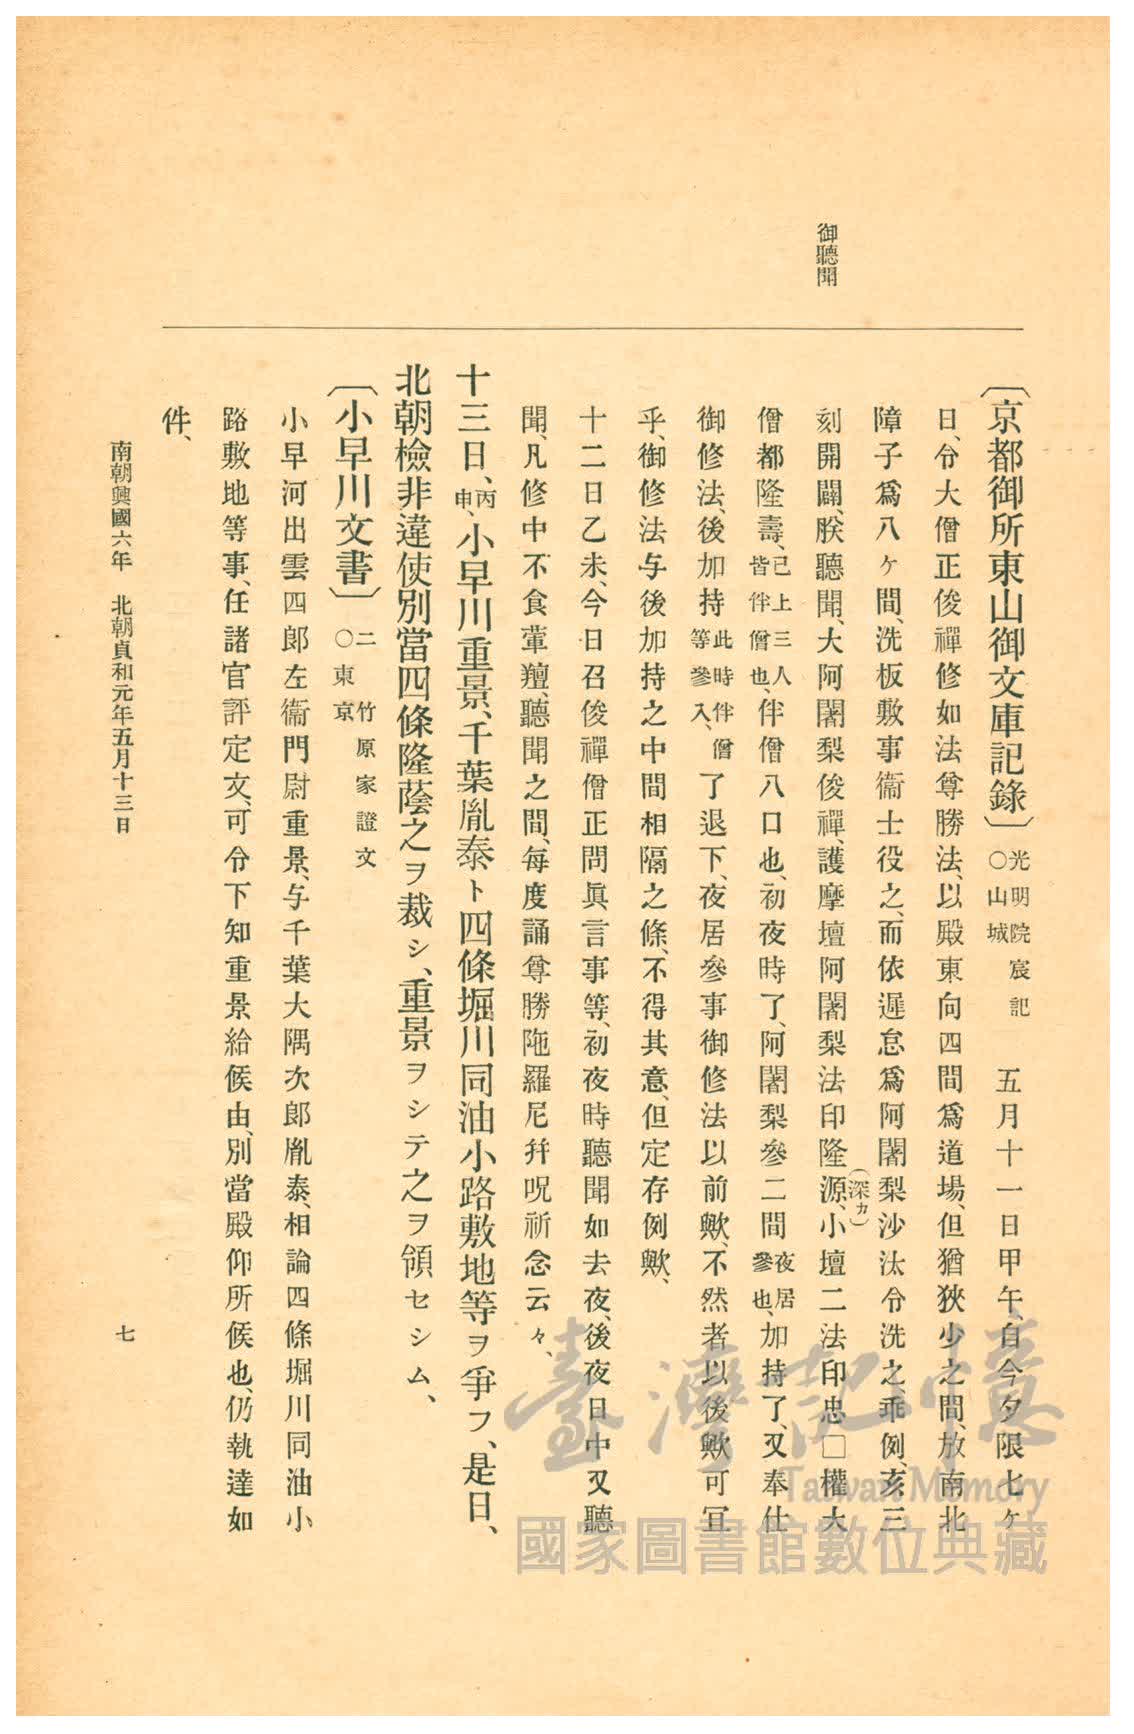 御聽聞
〔京都御所東山御文庫記錄〕光明院宸記○山城 五月十一日甲午、自今夕限七ヶ
日、令大僧正俊禪修如法尊勝法、以殿東向四間爲道場、但猶狹少之間、放南北
障子爲八ヶ間、洗板敷事衞士役之、而依遲怠爲阿闍梨沙汰令洗之、乖例、亥三
刻開闢、朕聽聞、大阿闍梨俊禪、護摩壇阿闍梨法印隆源、(深カ)小壇二法印忠□權大
僧都隆壽、己上三人皆伴僧也、伴僧八口也、初夜時了、阿闍梨參二間夜居參也、加持了、又奉仕
御修法、後加持此時伴僧等參入、了退下、夜居參事御修法以前歟、不然者以後歟可冝
乎、御修法与後加持之中間相隔之條、不得其意、但定存例歟、
十二日乙未、今日召俊禪僧正問眞言事等、初夜時聽聞如去夜、後夜日中又聽
聞、凡修中不食葷羶、聽聞之間、每度誦尊勝陁羅尼幷呪祈念云々、
十三日、丙申、小早川重景、千葉胤泰ト四條堀川同油小路敷地等ヲ爭フ、是日、
北朝檢非違使別當四條隆蔭之ヲ裁シ、重景ヲシテ之ヲ領セシム、
〔小早川文書〕二 竹原家證文○東京
小早河出雲四郞左衞門尉重景、与千葉大隅次郞胤泰、相論四條堀川同油小
路敷地等事、任諸官評定文、可令下知重景給候由、別當殿仰所候也、仍執達如
件、
南朝興國六年 北朝貞和元年五月十三日
七
臺灣記憶
Taiwan Memory
國家圖書館數位典藏